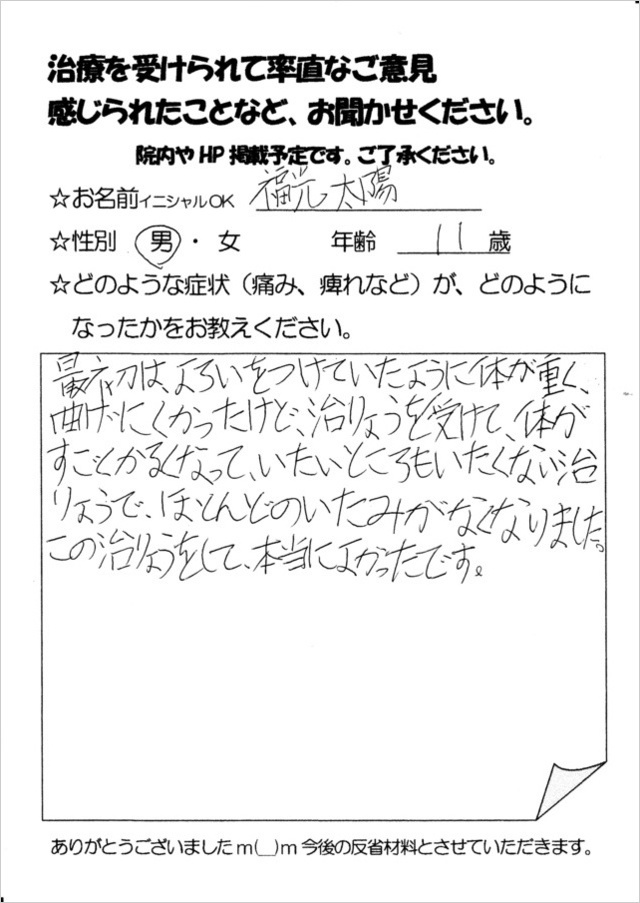 治療を受けられて率直なご意見
感じられたことなど、お聞かせください。
院内やHP掲載予定です。ご了承ください。
☆お名前イニシャルOK 福光太陽
☆性別 男・女 年齢 11歳
☆どのような症状（痛み、痺れなど）が、どのように
なったかをお教えください。
最初は、よろいをつけていたように体が重く、
曲げにくかったけど、治りょうを受けて、体が
すごくかるくなって、いたいところもいたくない治
りょうで、ほとんどのいたみがなくなりました。
この治りょうをして、本当によかったです。
ありがとうございましたm(__)m今後の反省材料とさせていただきます。